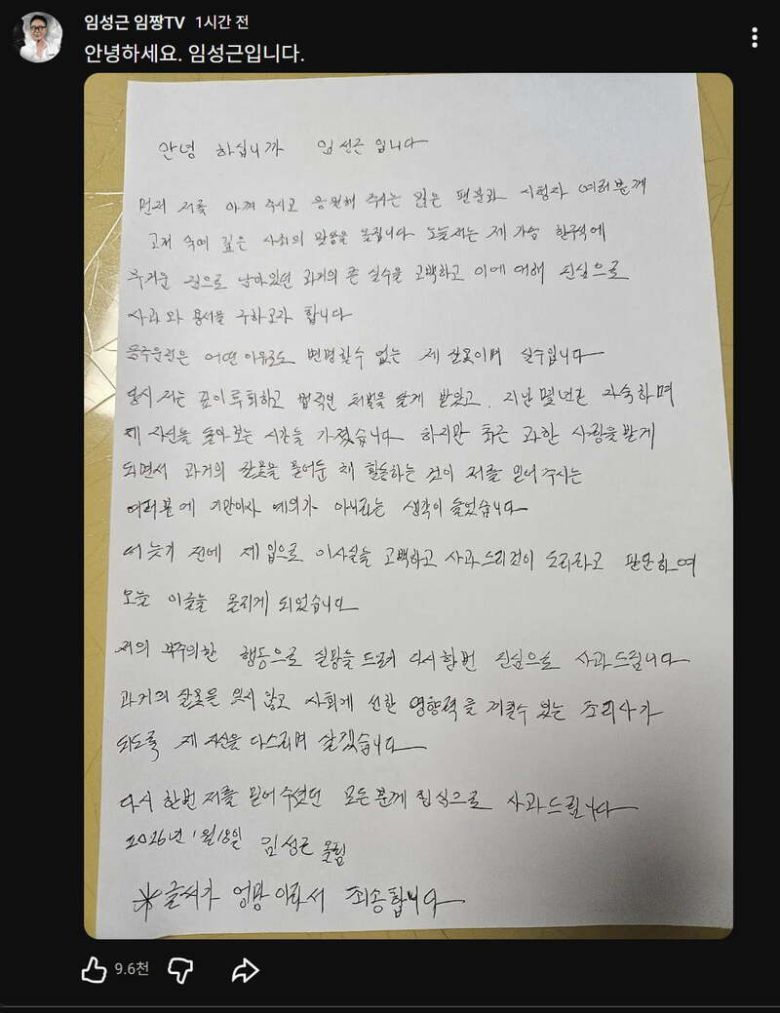 임성근 임짱TV 1시간 전
안녕하세요. 임성근입니다.
안녕 하십니까 임성근 입니다
먼저 저를 아껴 주시고 응원해 주시는 많은 팬분과 시청자 여러분께
고개 숙여 깊은 사죄의 말씀을 올립니다 오늘 저는 제 가슴 한구석에
무거운 짐으로 남아있던 과거의 큰 실수을 고백하고 이에 대해 진심으로
사과와 용서를 구하고자 합니다
음주운전은 어떤 이유로도 변명할수 없는 제 잘못이며 실수입니다
당시 저는 깊이 후회하고 법적인 처벌을 달게 받았고, 지난 몇년간 자숙하며
제 자신을 돌아보는 시간을 가졌습니다 하지만 최근 과한 사랑을받게
되면서 과거의 잘못을 묻어둔 채 활동하는 것이 저를 믿어 주시는
여러분에 기만이자 예의가 아니라는 생각이 들었습니다
더 늦기 전에 제 입으로 이사실을 고백하고 사과드리것이 도리라고 판단하여
오늘 이글을 올리게 되었습니다
저의 부주의한 행동으로 실망을 드려 다시한번 진심으로 사과드립니다
과거의 잘못을 잊지 않고 사회게 선한 영향력을 끼칠수 있는 조리사가
되도록 제 자신을 다스리며 살겠습니다
다시 한번 저를 믿어 주셨던 모든분게 진심으로 사과드립니다
2026년 1월18일 임성근 올림
※글씨가 엉망 이라서 죄송합니다
9.6천